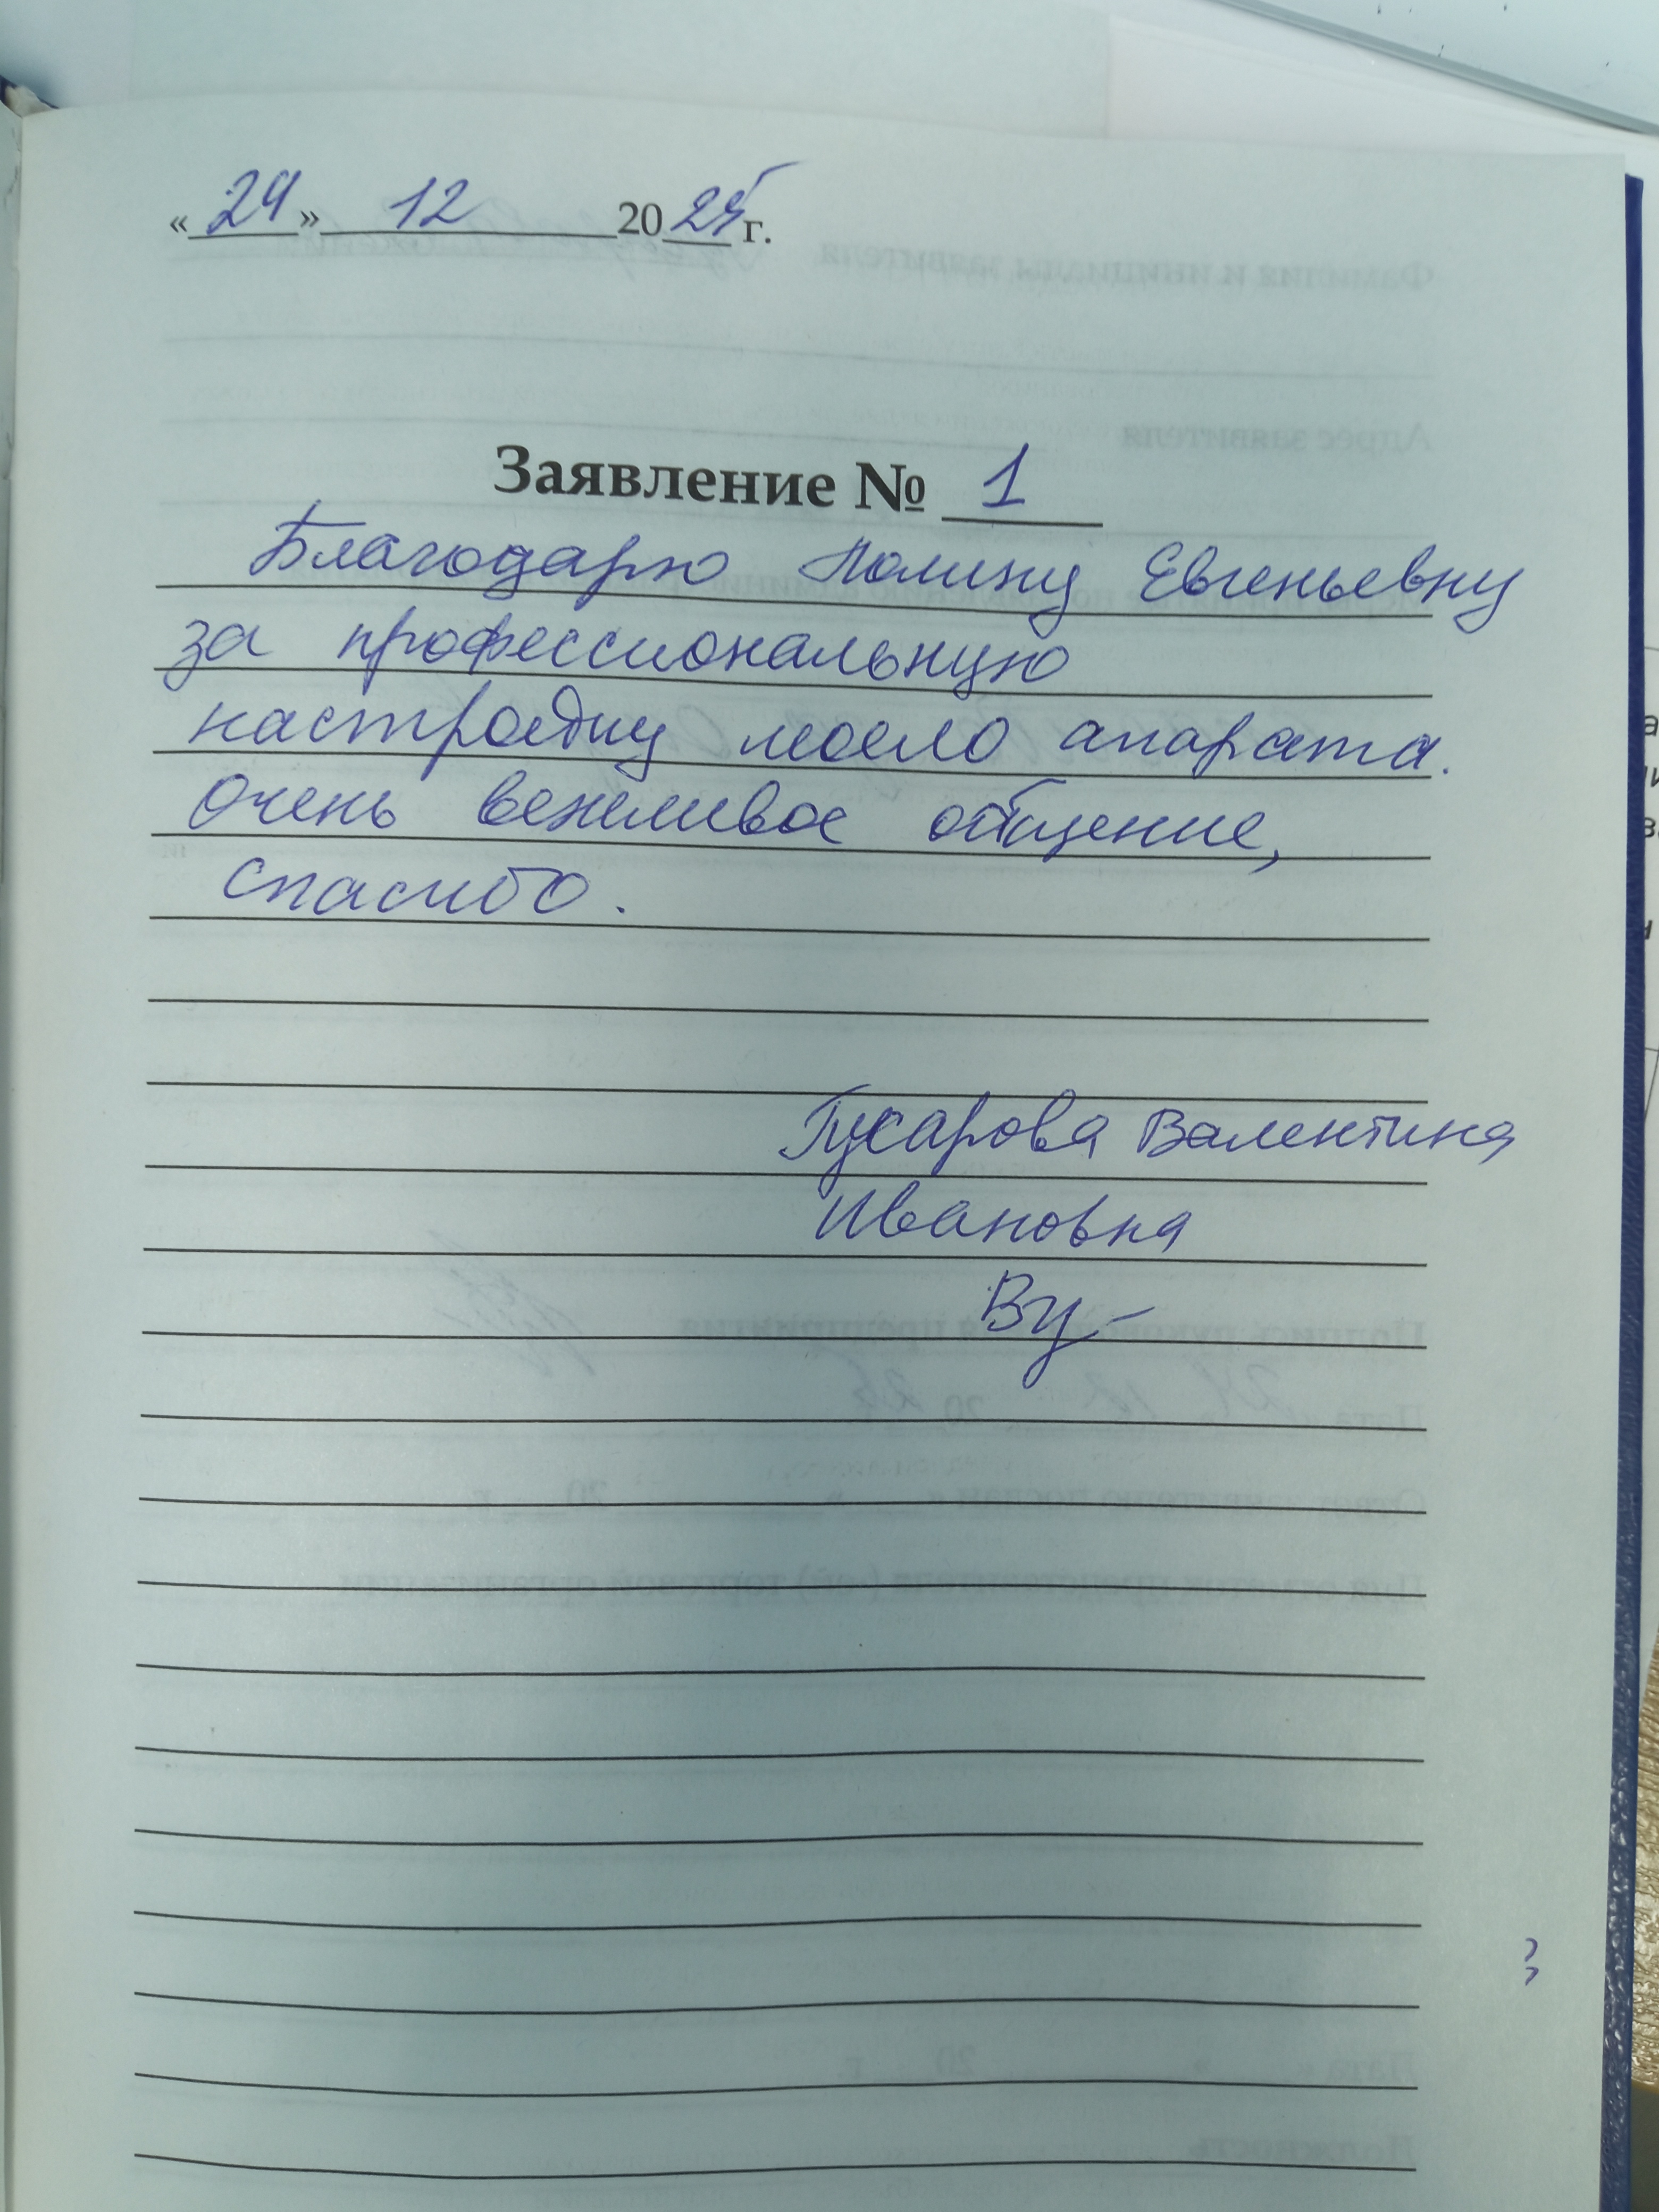 «24» 12 2025 г.
Заявление № 1
Благодарю Полину Евгеньевну
за профессиональную
настройку моего апарата.
Очень вежливое общение,
спасибо.
Гусарова Валентина
Ивановна